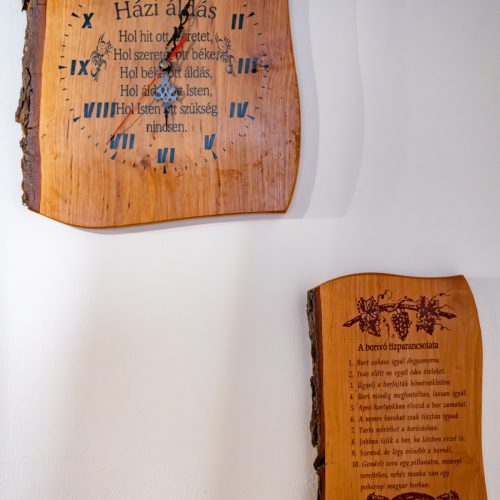 Házi áldás
Hol hit ott szeretet,
Hol szeretet ott béke,
Hol béke ott áldás,
Hol áldás ott Isten,
Hol Isten ott szükség
nincsen.
X II
IX III
VIII IIII
VII VI V
A borivó tízparancsolata
1. Bort sohase igyál éhgyomorra.
2. Ivás előtt ne egyél édes ételeket.
3. Ügyelj a borfajták hőmérsékletére.
4. Bort mindig megfontoltan, lassan igyál.
5. Apró kortyokban élvezd a bor zamatát.
6. A nemes borokat csak tisztán igyad.
7. Tarts mértéket a borivásban.
8. Jobban ízlik a bor, ha közben eszel is.
9. Szemed, de légy erősebb a bornál.
10. Gondolj arra egy pillanatra, mennyi
verejtékes, nehéz munka van egy
pohárnyi magyar borban.